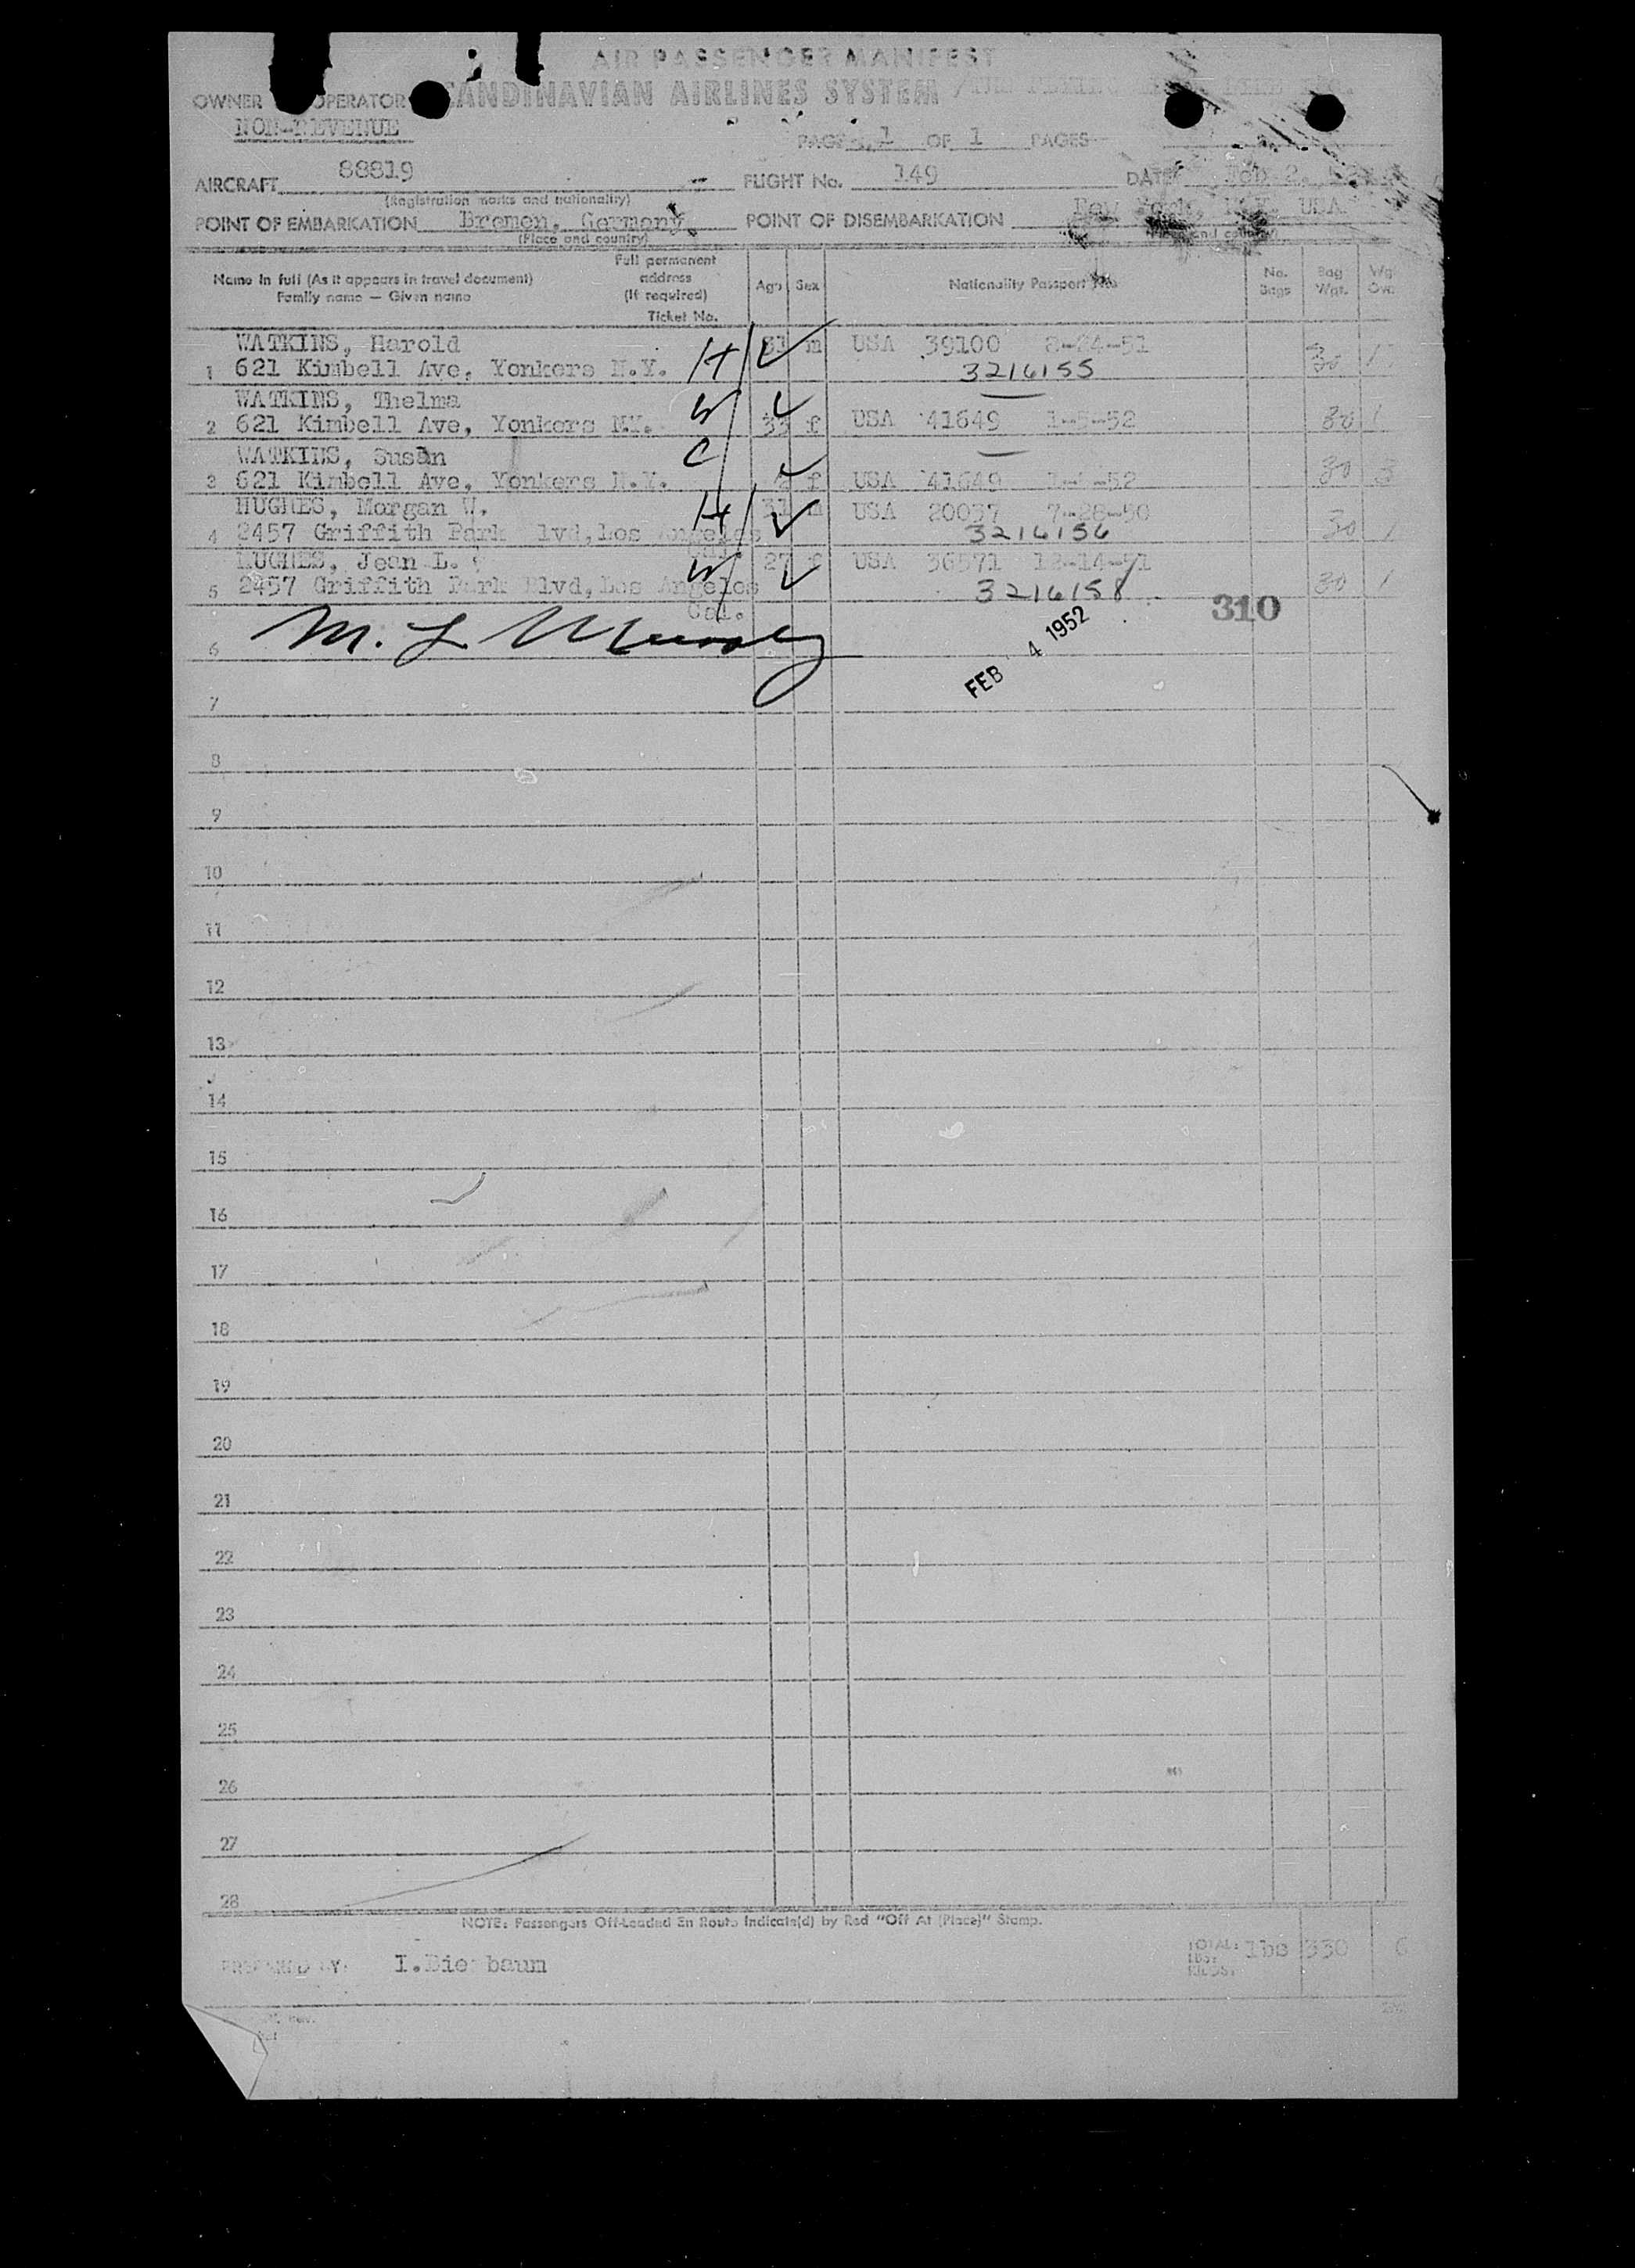 AIR PASSENGER MANIFEST
OWNER OPERATOR SCANDINAVIAN AIRLINES SYSTEM
NON-REVENUE
PAGE 1 OF 1 PAGES
AIRCRAFT 88819 FLIGHT No. 149 DATE Feb 2,
(Registration marks and nationality)
POINT OF EMBARKATION Bremen, Germany POINT OF DISEMBARKATION New York, N.Y. USA
(Place and country) (Place and country)
Name in full (As it appears in travel document) Family name — Given name Full permanent address (If required) Ticket No. Age Sex Nationality Passport No. No. Bags Bag Wgt.
WATKINS, Harold 31 m USA 39100 8-24-51
1 621 Kimbell Ave, Yonkers N.Y. H 3216155 30 1
WATKINS, Thelma W
2 621 Kimbell Ave, Yonkers NY. 33 f USA 41649 1-5-52 30 1
WATKINS, Susan C
3 621 Kimbell Ave, Yonkers N.Y. f USA 41649 52 30 3
HUGHES, Morgan W. H 31 m USA 20037 7-28-50
4 2457 Griffith Park lvd, Los Angeles 3216156 30 1
Cal.
HUGHES, Jean L. W 27 f USA 36571 12-14-51
5 2457 Griffith Park Blvd, Los Angeles 3216158 30 1
Cal.
310
6 M. L
FEB 4 1952
7
8
9
10
11
12
13
14
15
16
17
18
19
20
21
22
23
24
25
26
27
28
NOTE: Passengers Off-Loaded En Route Indicate(d) by Red "Off At (Place)" Stamp.
PREPARED BY: I.Bierbaum TOTAL: LBS: KILOS: lbs 330 6